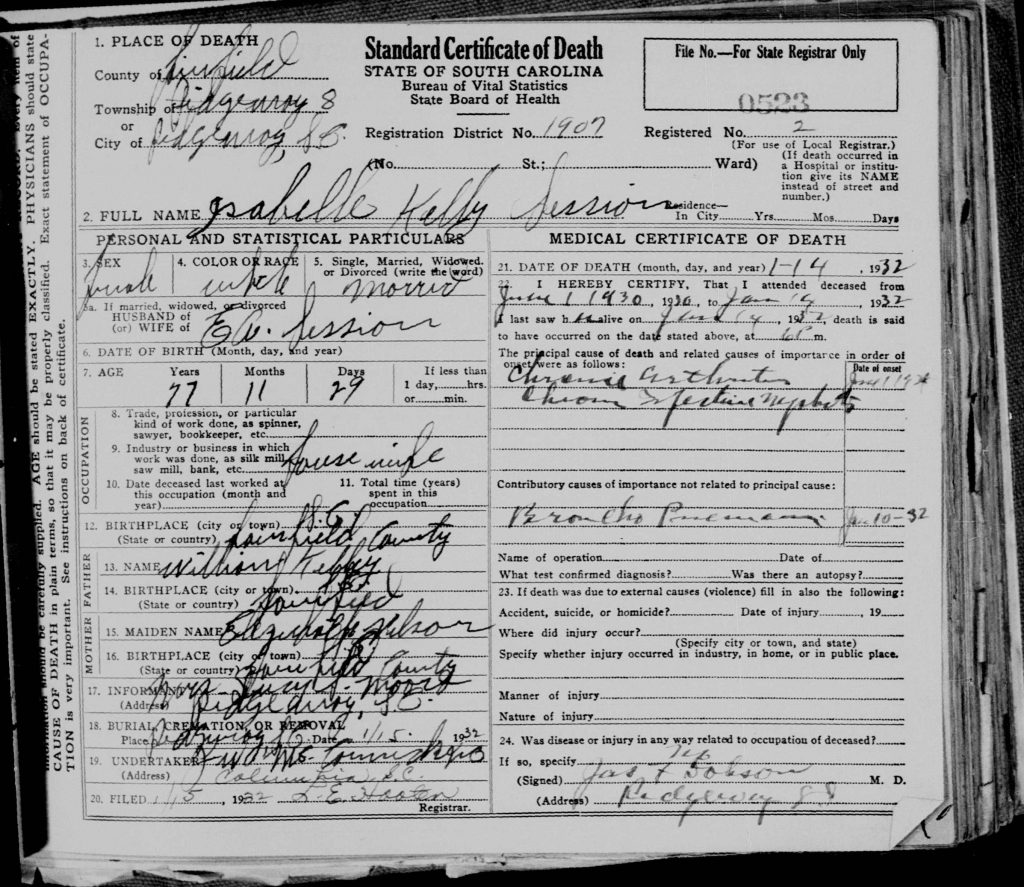 RECORD. Every item of
information should be carefully supplied. AGE should be stated EXACTLY. PHYSICIANS should state
CAUSE OF DEATH in plain terms, so that it may be properly classified. Exact statement of OCCUPA-
TION is very important. See instructions on back of certificate.
1. PLACE OF DEATH
County of Fairfield
Township of Ridgeway 8
or
City of Ridgeway, S.C.
Standard Certificate of Death
STATE OF SOUTH CAROLINA
Bureau of Vital Statistics
State Board of Health
File No.—For State Registrar Only
0523
Registration District No. 1907
Registered No. 2
(For use of Local Registrar.)
(No. St.; Ward)
(If death occurred in
a Hospital or institu-
tion give its NAME
instead of street and
number.)
2. FULL NAME Isabelle Kelly Session
Residence—
In City Yrs. Mos. Days
PERSONAL AND STATISTICAL PARTICULARS
3. SEX
4. COLOR OR RACE
5. Single, Married, Widowed.
or Divorced (write the word)
female white married
5a. If married, widowed, or divorced
HUSBAND of
(or) WIFE of Session
6. DATE OF BIRTH (Month, day, and year)
7. AGE Years Months Days If less than
1 day, hrs.
or min.
77 11 29
OCCUPATION
8. Trade, profession, or particular
kind of work done, as spinner,
sawyer, bookkeeper, etc.
9. Industry or business in which
work was done, as silk mill,
saw mill, bank, etc. House wife
10. Date deceased last worked at
this occupation (month and
year)
11. Total time (years)
spent in this
occupation
12. BIRTHPLACE (city or town) S.C.
(State or country) Fairfield County
FATHER
13. NAME William Kelly
14. BIRTHPLACE (city or town) S.C.
(State or country) Fairfield
MOTHER
15. MAIDEN NAME Wilson
16. BIRTHPLACE (city or town)
(State or country) Fairfield County
17. INFORMANT Mrs. Lucy S. Moore
(Address) Ridgeway, S.C.
18. BURIAL, CREMATION, OR REMOVAL
Place Ridgeway Date 1/15. 1932
19. UNDERTAKER
(Address) Columbia S.C.
20. FILED 1/15, 1932 L. E. Hooten
Registrar.
MEDICAL CERTIFICATE OF DEATH
21. DATE OF DEATH (month, day, and year) 1-14, 1932
22. I HEREBY CERTIFY, That I attended deceased from
June 1 1930, 1930, to Jan 14, 1932
I last saw her alive on Jan 14, 1932, death is said
to have occurred on the date stated above, at 6P m.
The principal cause of death and related causes of importance in order of
onset were as follows:
Date of onset
Chronic Arthritis June 1 1930
Chronic Nephritis
Contributory causes of importance not related to principal cause:
Broncho Pneumonia Jan 10-32
Name of operation Date of
What test confirmed diagnosis? Was there an autopsy?
23. If death was due to external causes (violence) fill in also the following:
Accident, suicide, or homicide? Date of injury , 19
Where did injury occur?
(Specify city or town, and state)
Specify whether injury occurred in industry, in home, or in public place.
Manner of injury
Nature of injury
24. Was disease or injury in any way related to occupation of deceased?
If so, specify No
(Signed) Jas. F. Dobson M. D.
(Address) Ridgeway S C